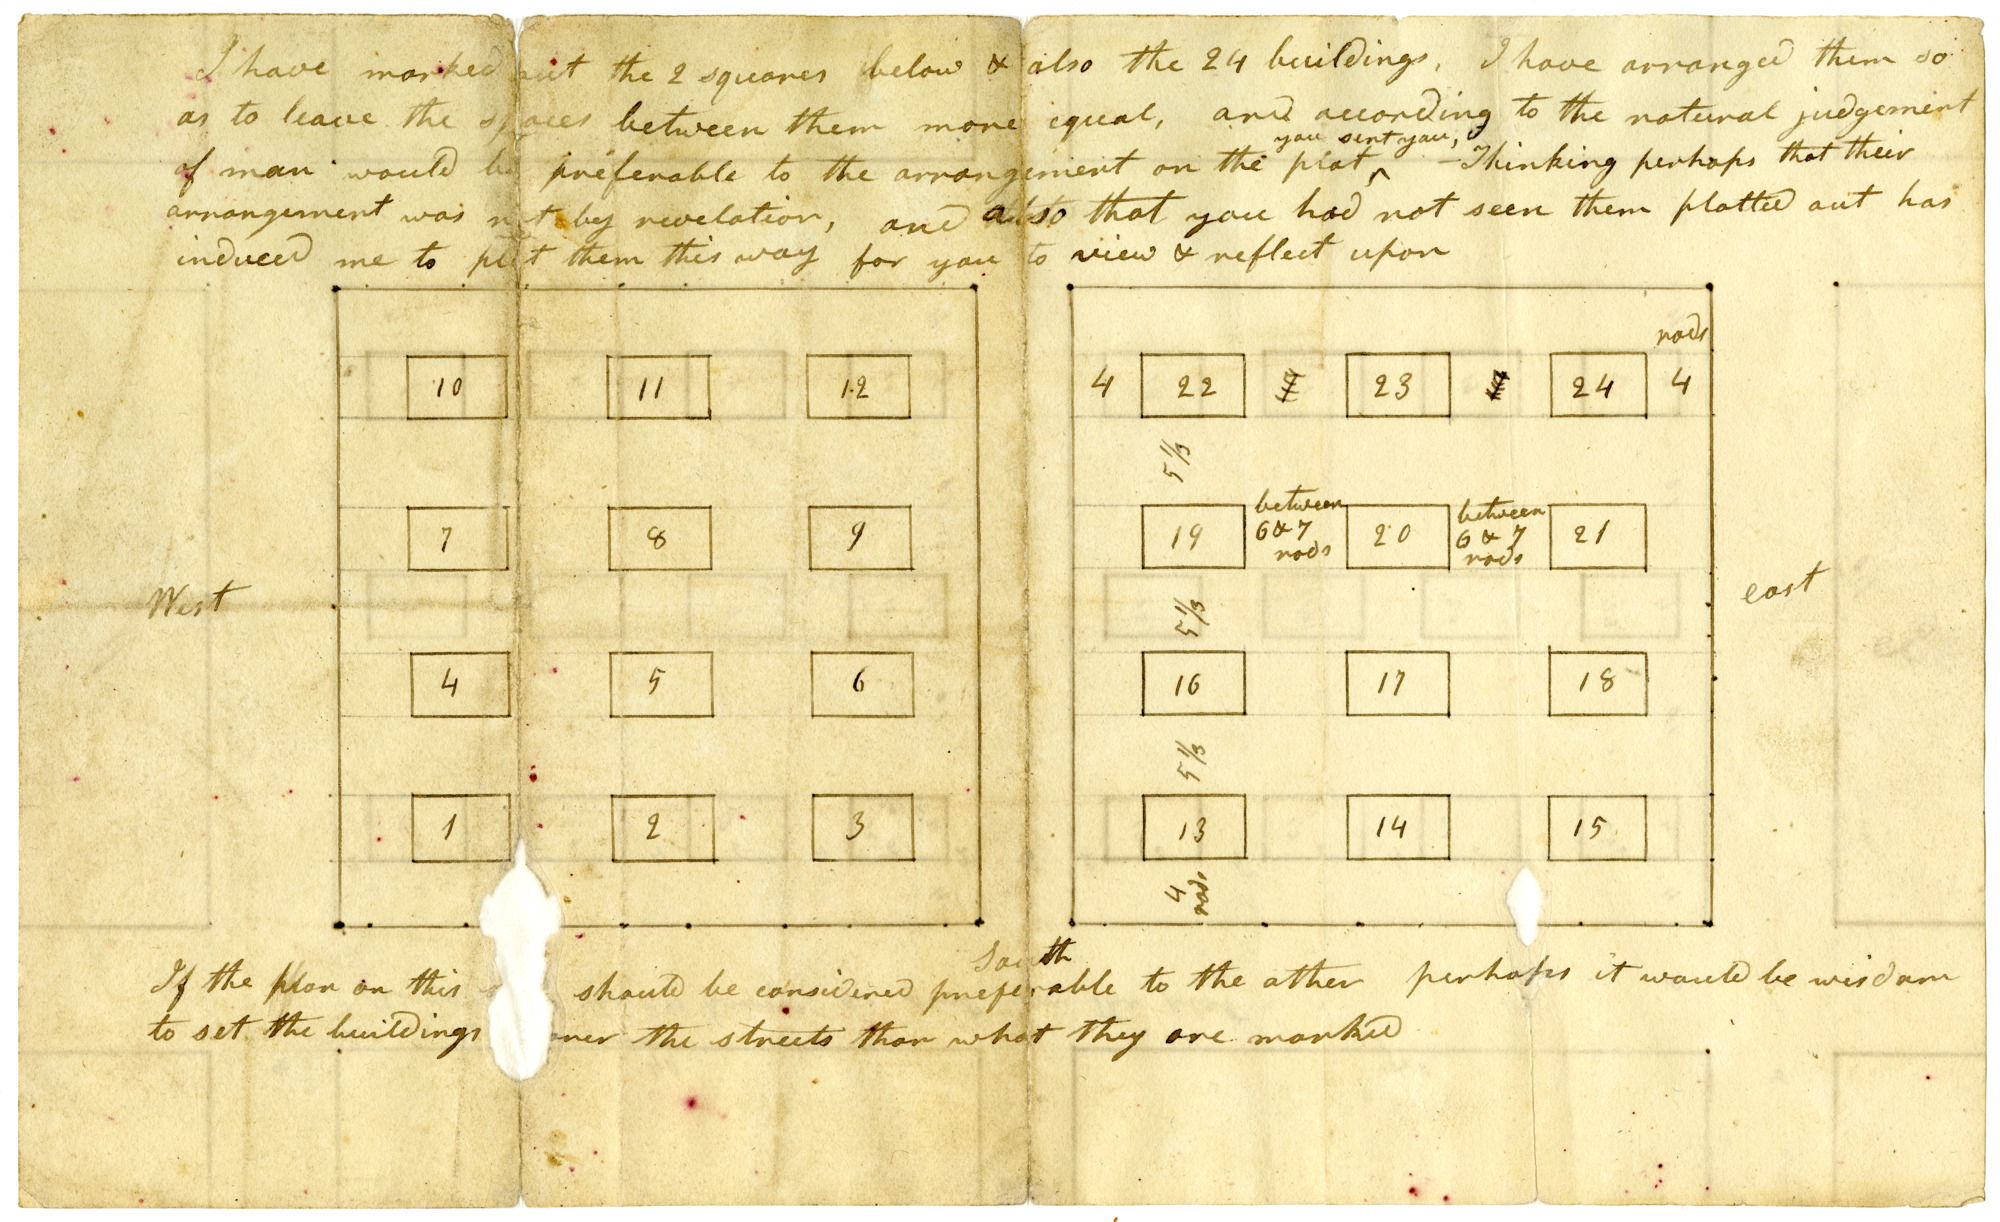 I have marked out the 2 squares below & also the 24 buildings, I have arranged them so
as to leave the spaces between them more equal, and according to the natural judgement
you sent you,
of man would be preferable to the arrangement on the plat ^ – Thinking perhaps that their
arrangement was not by revelation, and also that you had not seen them platted out has
induced me to plat them this way for you to view & reflect upon
rods
10 11 12 4 22 23 24 4
5 1/3
7 8 9 19 between 6 & 7 rods 20 between 6 & 7 rods 21
West east
5 1/3
4 5 6 16 17 18
5 1/3
1 2 3 13 14 15
4 rods
South
If the plan on this should be considered preferable to the other perhaps it would be wisdom
to set the buildings the streets than what they are marked